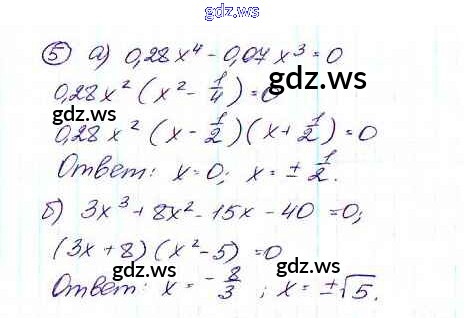 gdz.ru
⑤ а) 0,28x⁴ - 0,07x³ = 0
0,28x² (x² - 1/4) = 0
gdz.ru gdz.ru
0,28x² (x - 1/2)(x + 1/2) = 0
Ответ: x = 0; x = ± 1/2.
gdz.ru gdz.ru
б) 3x³ + 8x² - 15x - 40 = 0;
(3x + 8)(x² - 5) = 0
gdz.ru gdz.ru
Ответ: x = -8/3; x = ±√5.